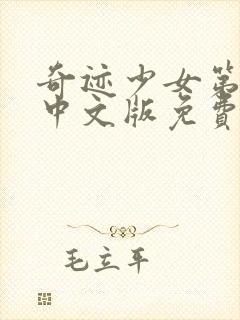 奇迹少女第
中文版免费
毛立平